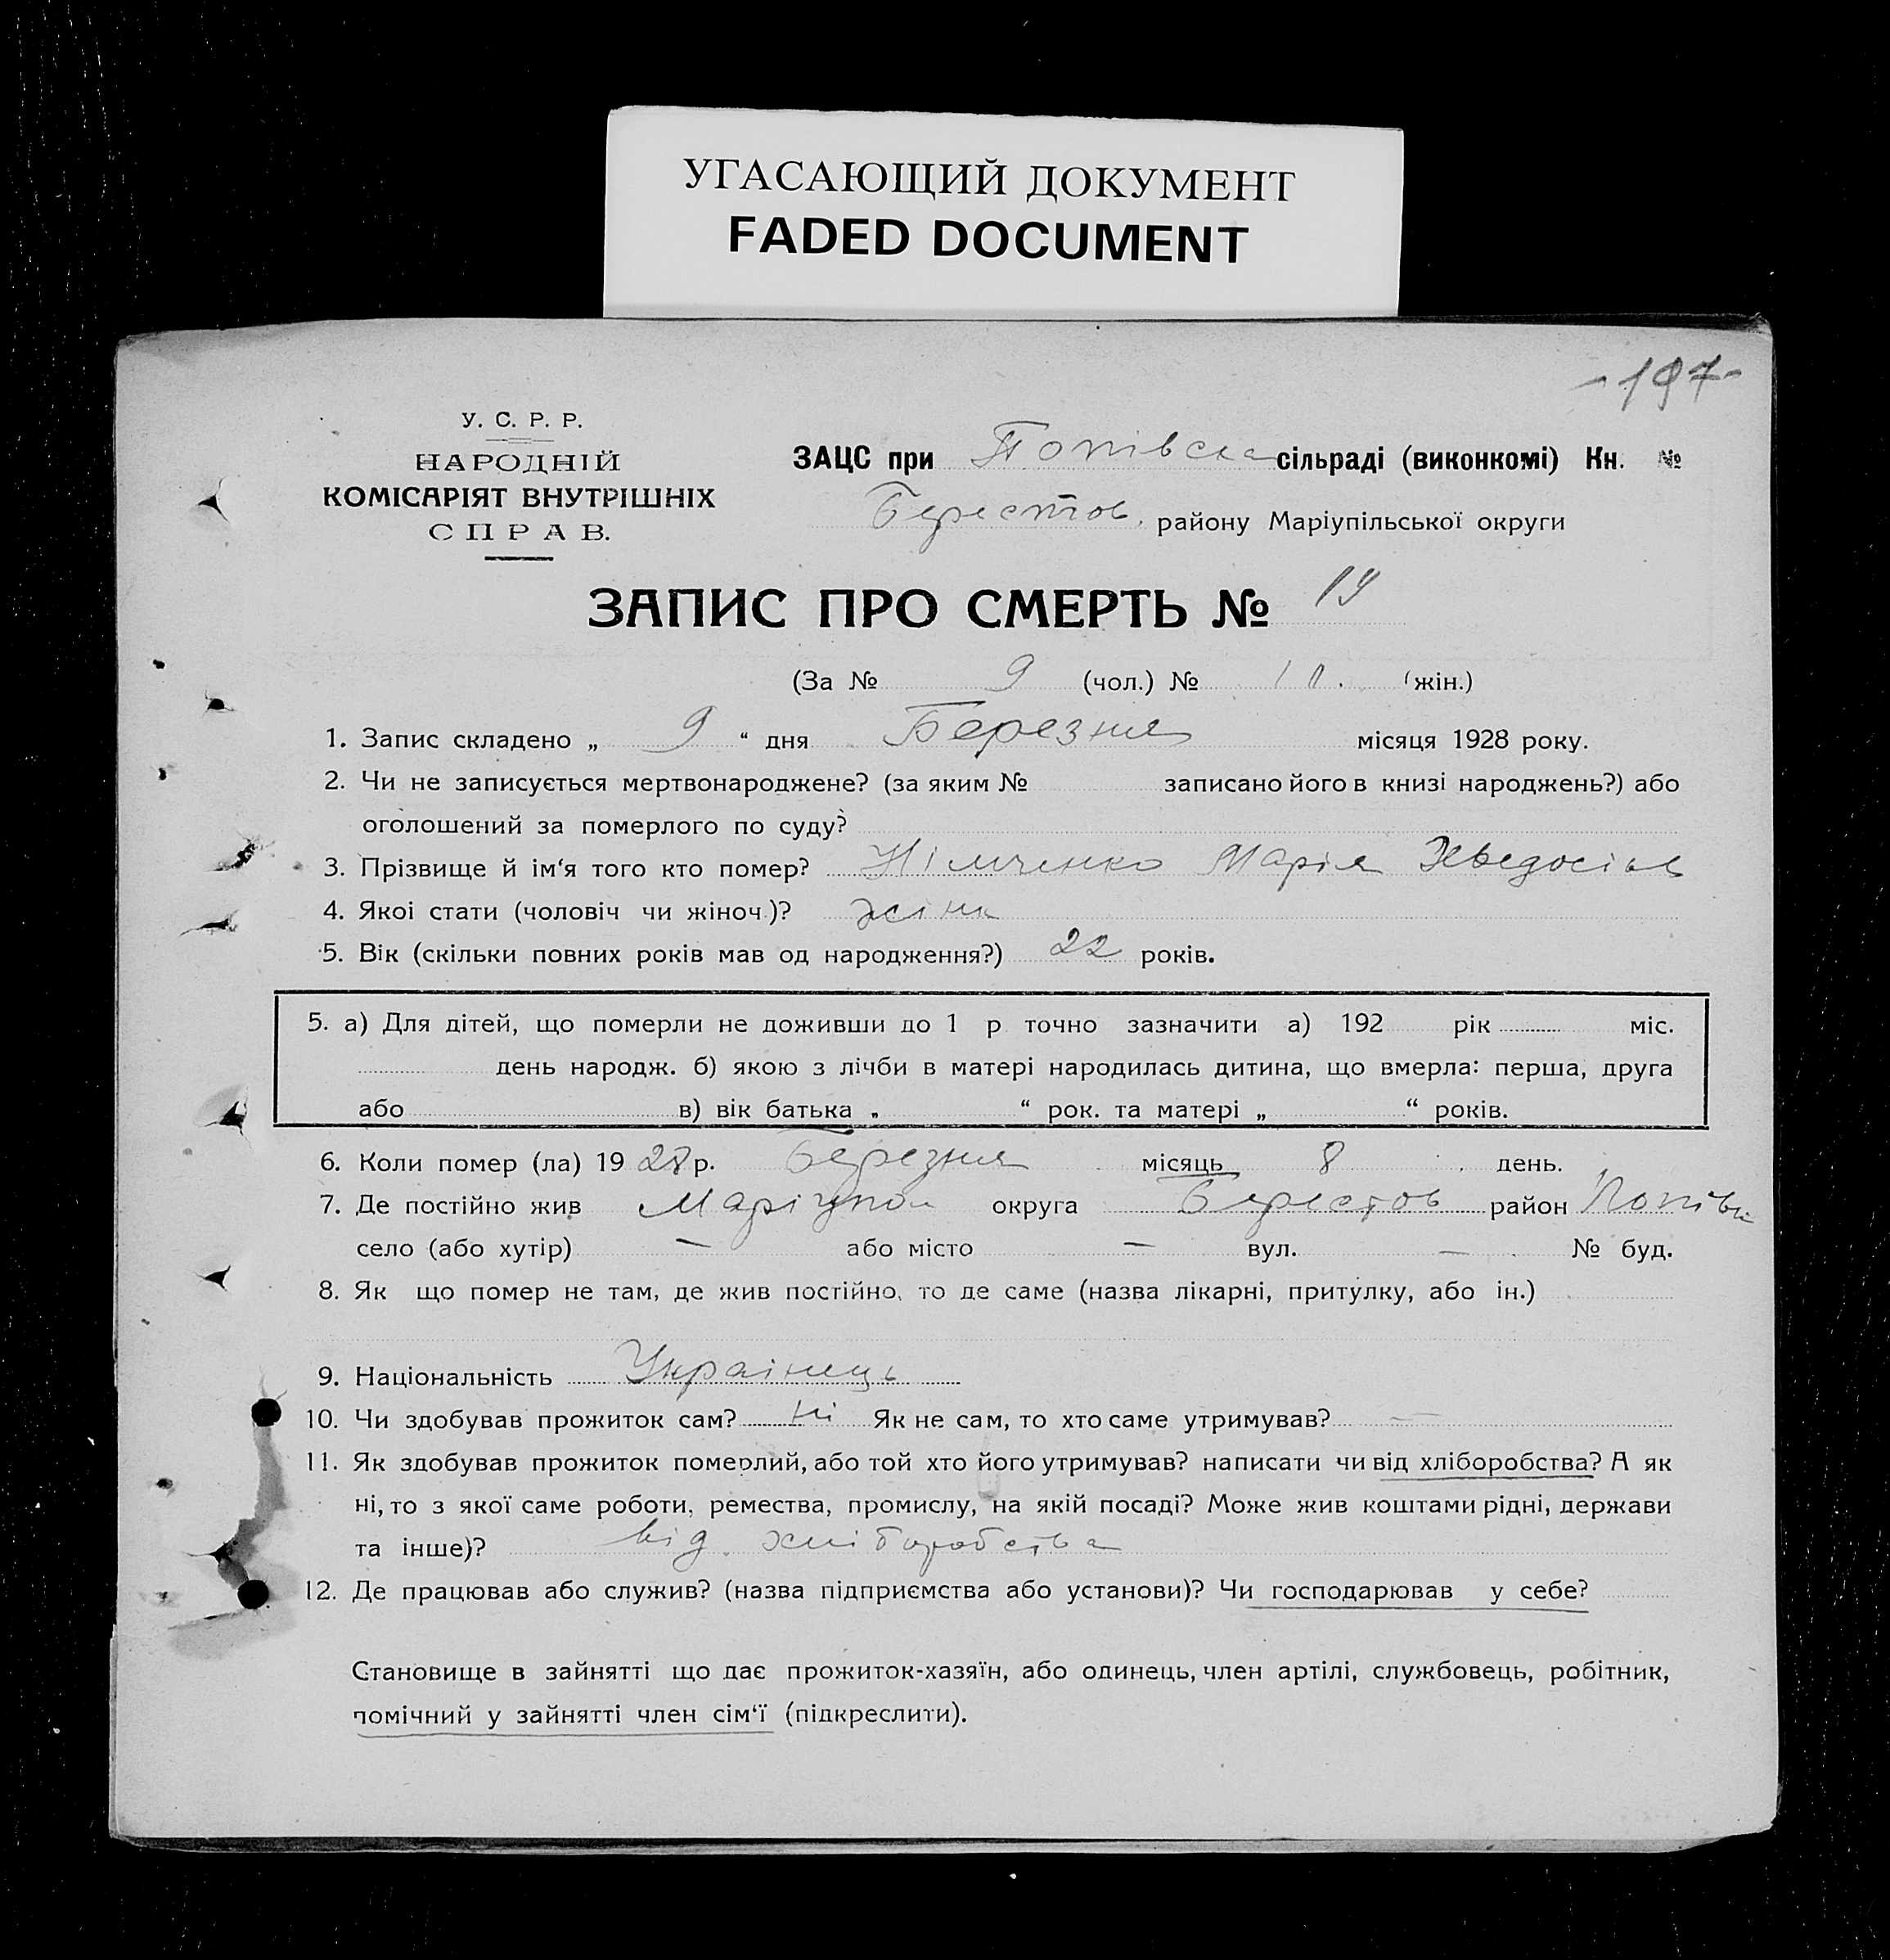 УГАСАЮЩИЙ ДОКУМЕНТ
FADED DOCUMENT
-197-
У. С. Р. Р.
НАРОДНІЙ
КОМІСАРІЯТ ВНУТРІШНІХ
СПРАВ.
ЗАЦС при Попівска сільраді (виконкомі) Кн. №
Берестов. району Маріупільської округи
ЗАПИС ПРО СМЕРТЬ № 19
(За № 9 (чол.) № 10. (жін.)
1. Запис складено „ 9 “ дня Березня місяця 1928 року.
2. Чи не записується мертвонароджене? (за яким № записано його в книзі народжень?) або
оголошений за померлого по суду?
3. Прізвище й ім‘я того кто помер? Німченко Марія Хведосіев
4. Якоі стати (чоловіч чи жіноч.)? жінк
5. Вік (скільки повних років мав од народження?) 22 років.
5. а) Для дітей, що померли не доживши до 1 р точно зазначити а) 192 рік міс.
день народж. б) якою з лічби в матері народилась дитина, що вмерла: перша, друга
або в) вік батька „ “ рок. та матері „ “ років.
6. Коли помер (ла) 1928 р. Березня місяць 8 день.
7. Де постійно жив Маріупол округа Берестов район Попівк
село (або хутір) — або місто — вул. — № буд.
8. Як що помер не там, де жив постійно, то де саме (назва лікарні, притулку, або ін.)
9. Національність Украінець
10. Чи здобував прожиток сам? Ні Як не сам, то хто саме утримував? —
11. Як здобував прожиток померлий, або той хто його утримував? написати чи від хліборобства? А як
ні, то з якої саме роботи, ремества, промислу, на якій посаді? Може жив коштами рідні, держави
та інше)? від хліборобства
12. Де працював або служив? (назва підприємства або установи)? Чи господарював у себе?
Становище в зайнятті що дає прожиток-хазяїн, або одинець, член артілі, службовець, робітник,
помічний у зайнятті член сім‘ї (підкреслити).